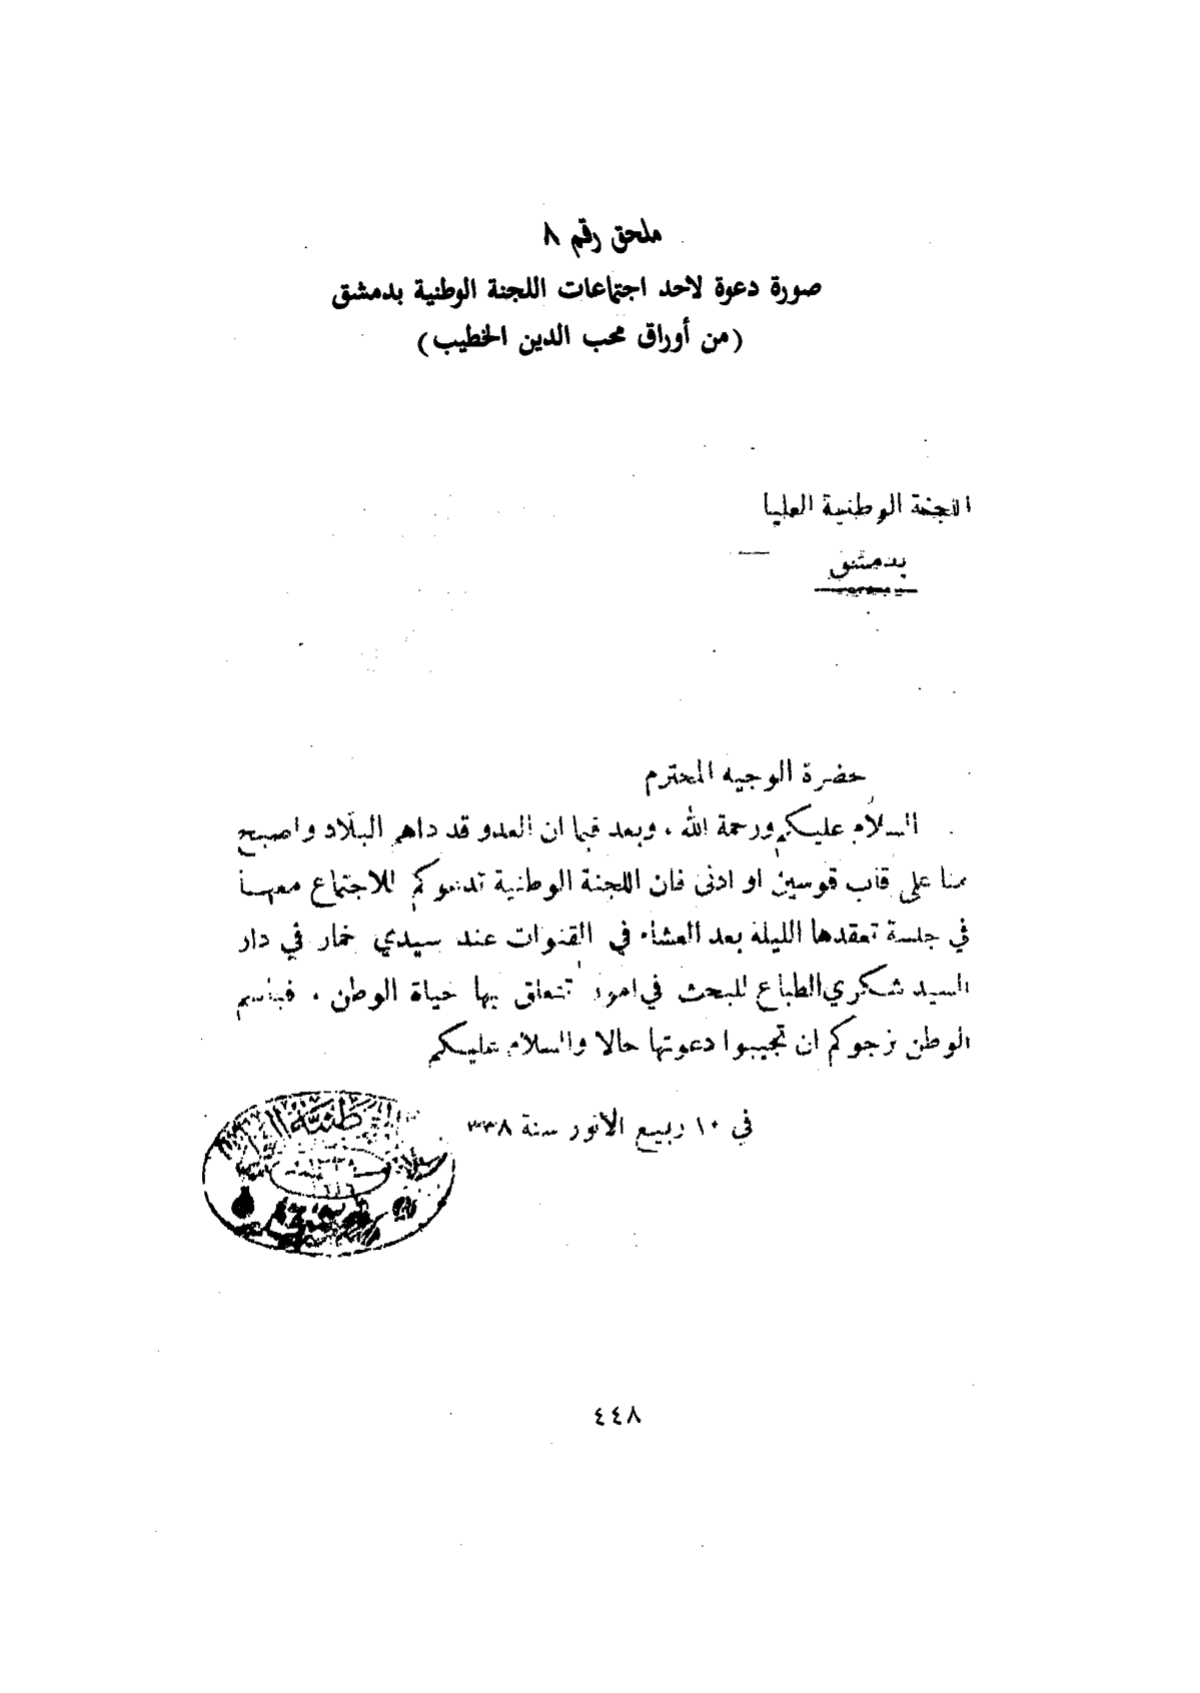 ملحق رقم ٨
صورة دعوة لاحد اجتماعات اللجنة الوطنية بدمشق
(من أوراق محب الدين الخطيب)
اللجنة الوطنية العليا
بدمشق
حضرة الوجيه المحترم
السلام عليكم ورحمة الله ، وبعد فبما ان العدو قد داهم البلاد واصبح
منا على قاب قوسين او ادنى فان اللجنة الوطنية تدعوكم للاجتماع معها
في جلسة تعقدها الليلة بعد العشاء في القنوات عند سيدي خمار في دار
السيد شكري الطباع للبحث في امور تتعلق بها حياة الوطن ، فباسم
الوطن نرجوكم ان تجيبوا دعوتها حالا والسلام عليكم
في ١٠ ربيع الانور سنة ٣٣٨
٤٤٨